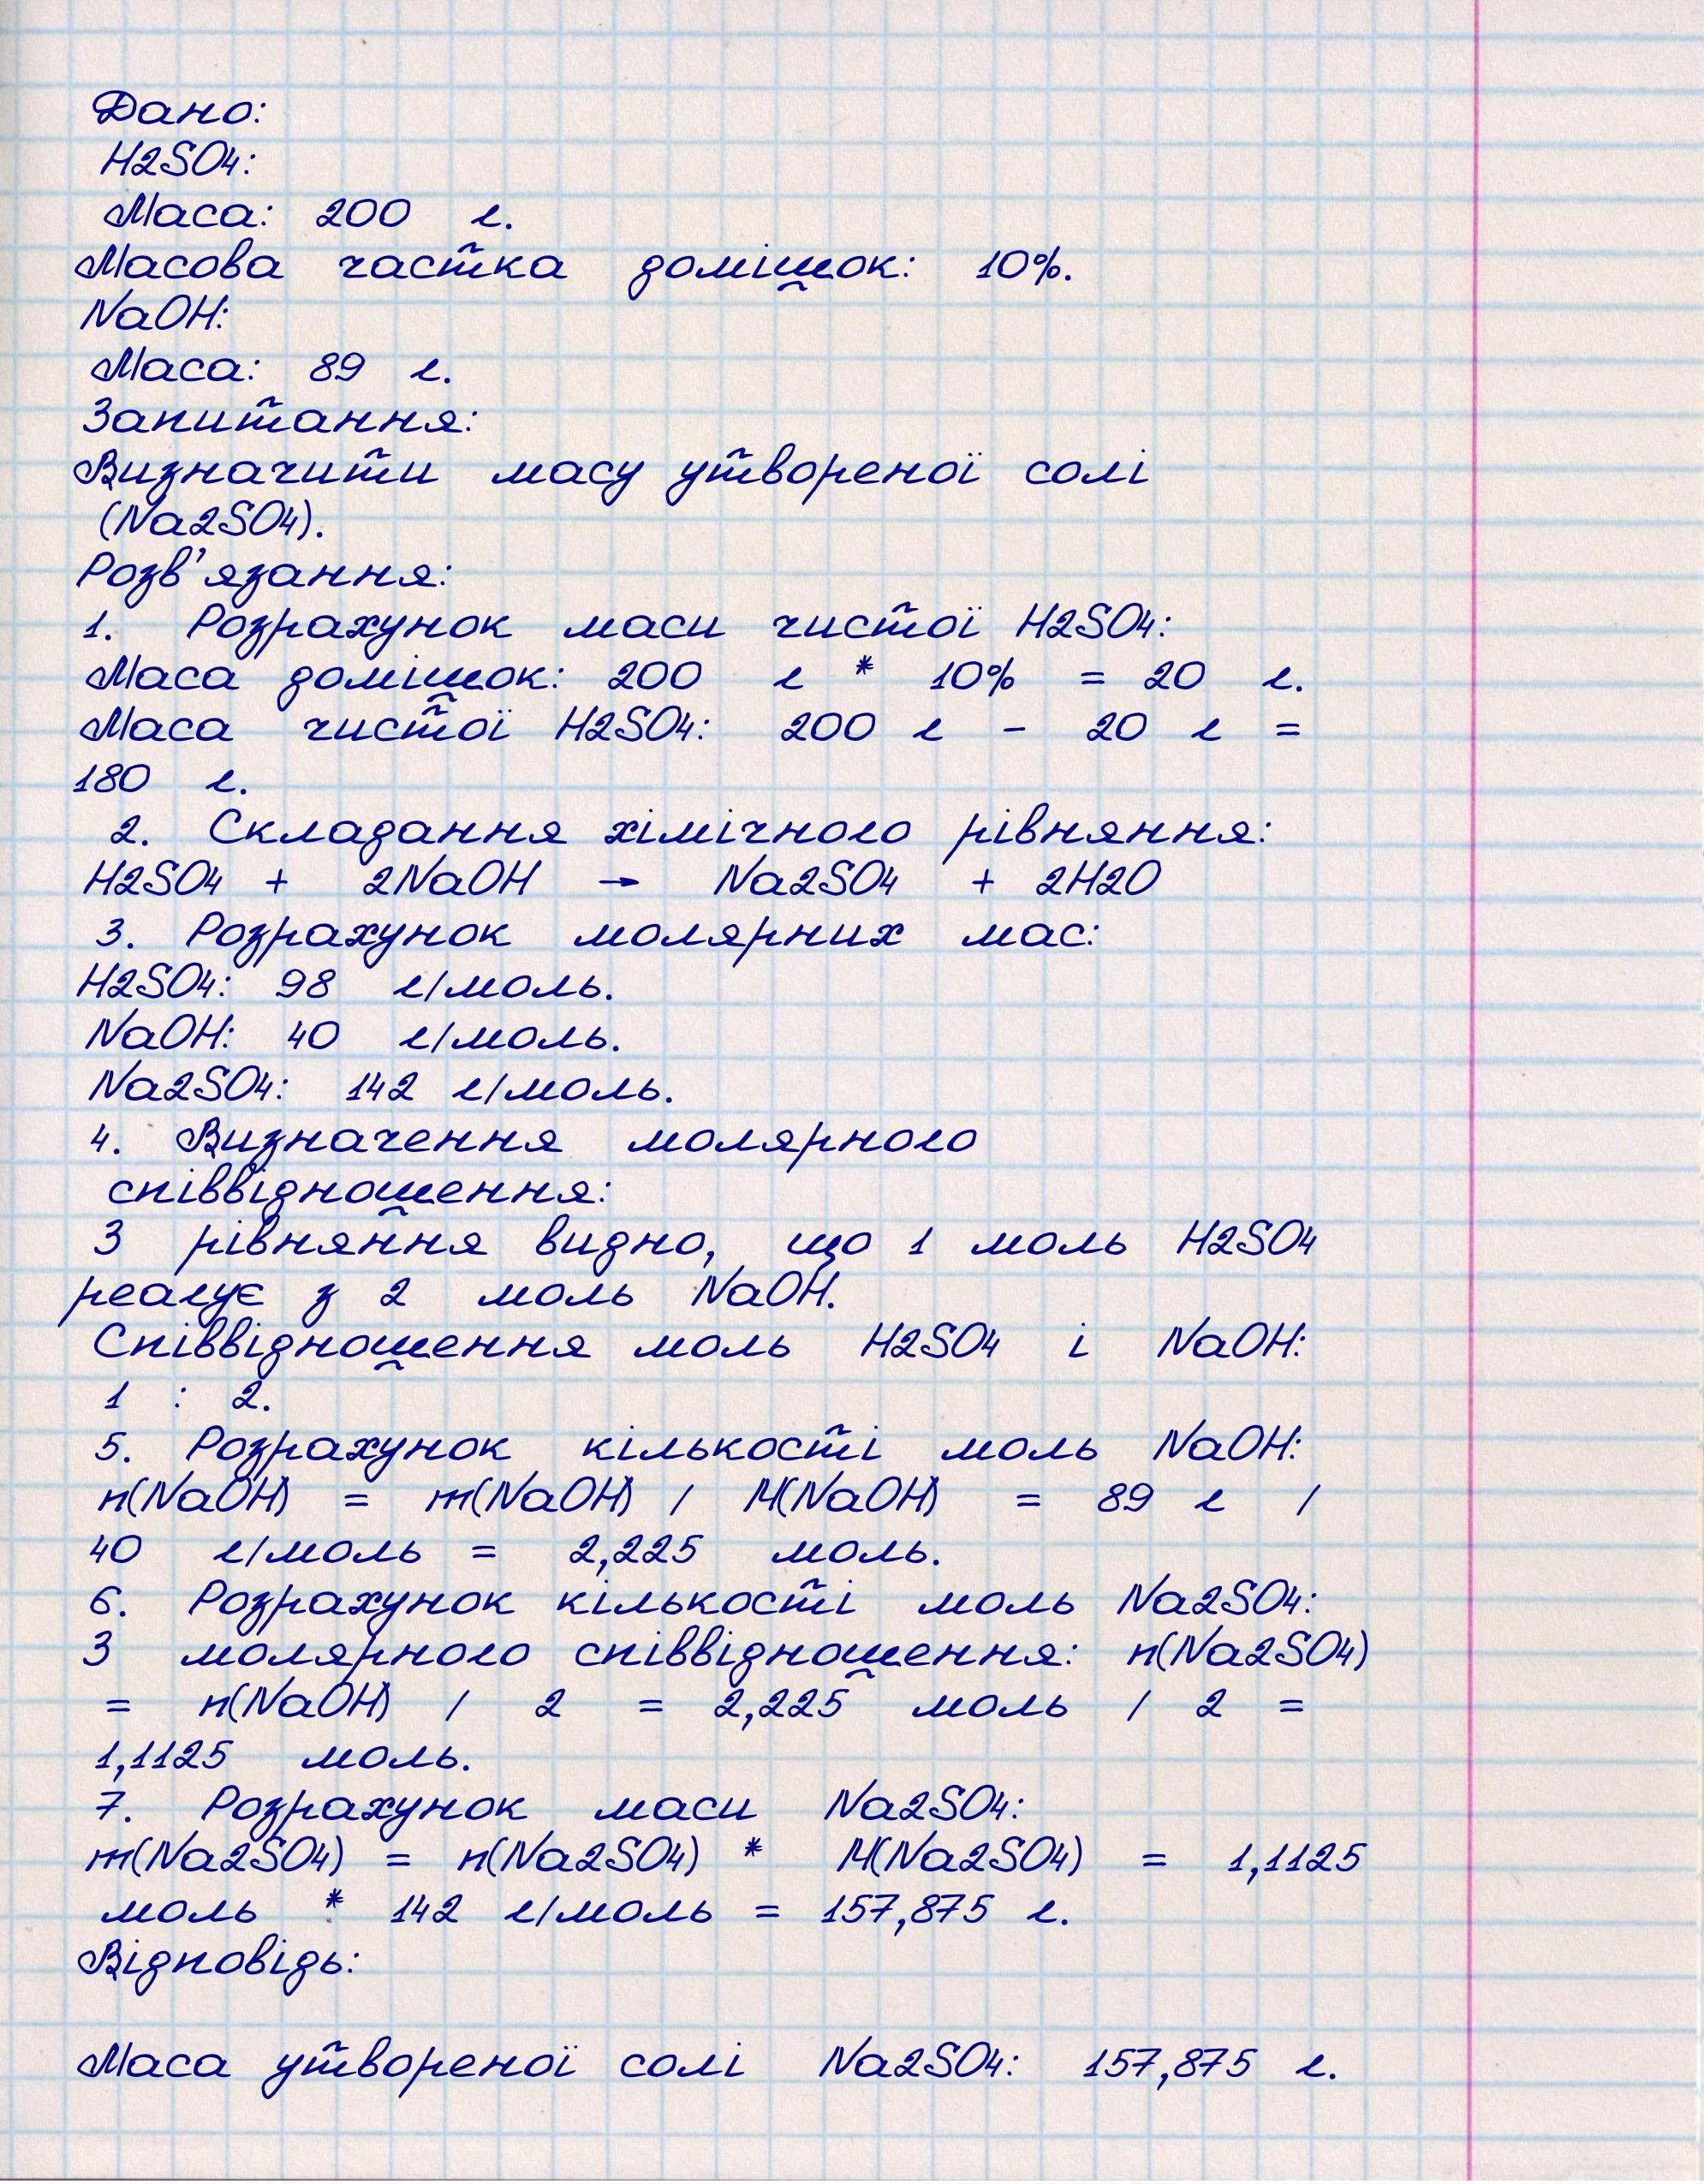 Дано:
H2SO4:
Маса: 200 г.
Масова частка домішок: 10%.
NaOH:
Маса: 89 г.
Запитання:
Визначити масу утвореної солі
(Na2SO4).
Розв'язання:
1. Розрахунок маси чистої H2SO4:
Маса домішок: 200 г * 10% = 20 г.
Маса чистої H2SO4: 200 г - 20 г =
180 г.
2. Складання хімічного рівняння:
H2SO4 + 2NaOH → Na2SO4 + 2H2O
3. Розрахунок молярних мас:
H2SO4: 98 г/моль.
NaOH: 40 г/моль.
Na2SO4: 142 г/моль.
4. Визначення молярного
співвідношення:
З рівняння видно, що 1 моль H2SO4
реагує з 2 моль NaOH.
Співвідношення моль H2SO4 і NaOH:
1 : 2.
5. Розрахунок кількості моль NaOH:
n(NaOH) = m(NaOH) / M(NaOH) = 89 г /
40 г/моль = 2,225 моль.
6. Розрахунок кількості моль Na2SO4:
З молярного співвідношення: n(Na2SO4)
= n(NaOH) / 2 = 2,225 моль / 2 =
1,1125 моль.
7. Розрахунок маси Na2SO4:
m(Na2SO4) = n(Na2SO4) * M(Na2SO4) = 1,1125
моль * 142 г/моль = 157,875 г.
Відповідь:
Маса утвореної солі Na2SO4: 157,875 г.